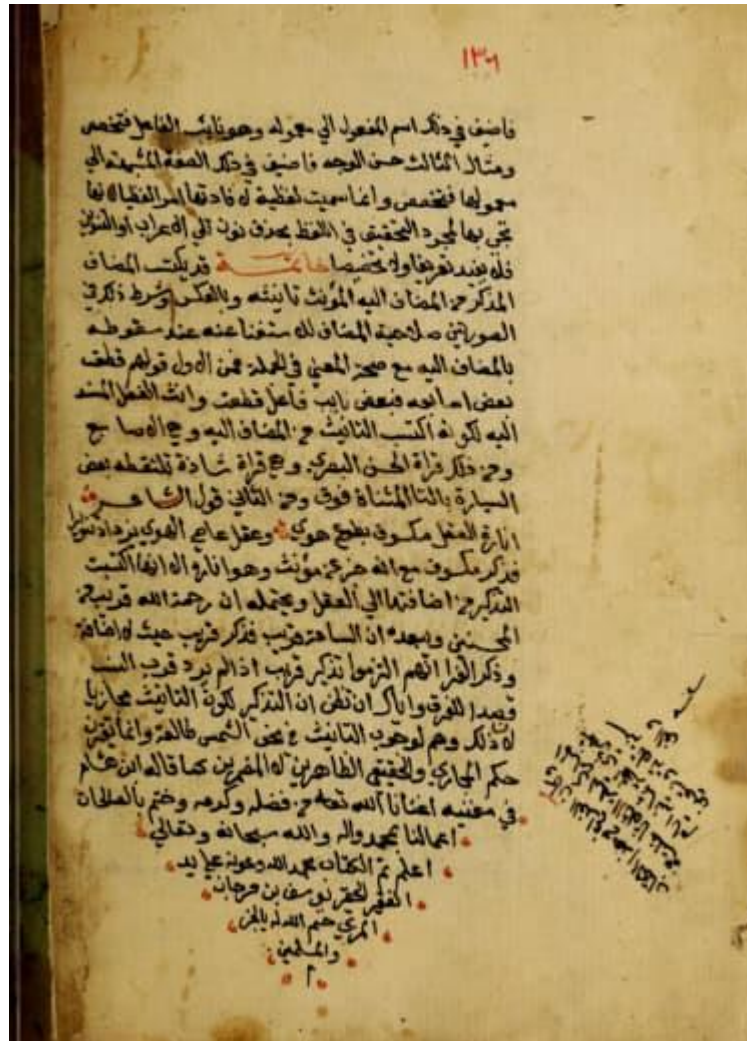 ١٣٠٦
فاضيف في ذلك اسم المفعول الي معموله وهو نايب الفاعل فتخصص
ومثال الثالث حسن الوجه فاضيف في ذلك الصفة المشبهة الي
معمولها فتخصص وانما سميت لفظية لافادتها امرا لفظيا لانها
تجي بها لمجرد التخفيف في اللفظ بحذف نون تلي الاعراب او التنوين
فلا يفيد تعريفا ولا تخصيصا خاتمــة قد يكتسب المضاف
المذكر من المضاف اليه المؤنث تانيثه وبالعكس وشرط ذلك في
الصورتين صلاحية المضاف للاستغناء عنه عند سقوطه
بالمضاف اليه مع صحة المعني في الجملة فمن الاول قولهم قطعت
بعض اصابعه فبعض نايب فاعل قطعت وانث الفعل المسند
اليه لكونه اكتسب التانيث من المضاف اليه وهي الاصابع
ومن ذلك قراة الحسن البصري وهي قراة شاذة تلتقطه بعض
السيارة بالتا المثناة فوق ومن الثاني قول الشاعـر
انارة العقل مكسوف بطوع هوي وعقل عاصي الهوي يزداد تنويرا
فذكر مكسوف مع انه خبر عن مؤنث وهو انارة الا انها اكتسبت
التذكير من اضافتها الي العقل ويحتمله ان رحمة الله قريب من
المحسنين ويبعده ان الساعة قريب فذكر قريب حيث لا اضافة
وذكر الفرا انهم التزموا تذكير قريب اذا لم يرد قرب النسب
قصدا للفرق واياك ان تظن ان التذكير لكون التانيث مجازيا
لان ذلك وهم لوجوب التانيث في نحو الشمس طالعة وانما يفترق
حكم المجازي والحقيقي الظاهرين لا المضمرين كما قاله ابن هشام
في مغنيه اغنانا الله تعه من فضله وكرمه وختم بالصالحات
اعمالنا بمحمد واله والله سبحانه وتعالي
اعلم تم الكتاب بحمد الله وعونه علي يد
الفقير الحقير يوسف بن فرحان
ختم الله له بالخير
والمسلمين
م